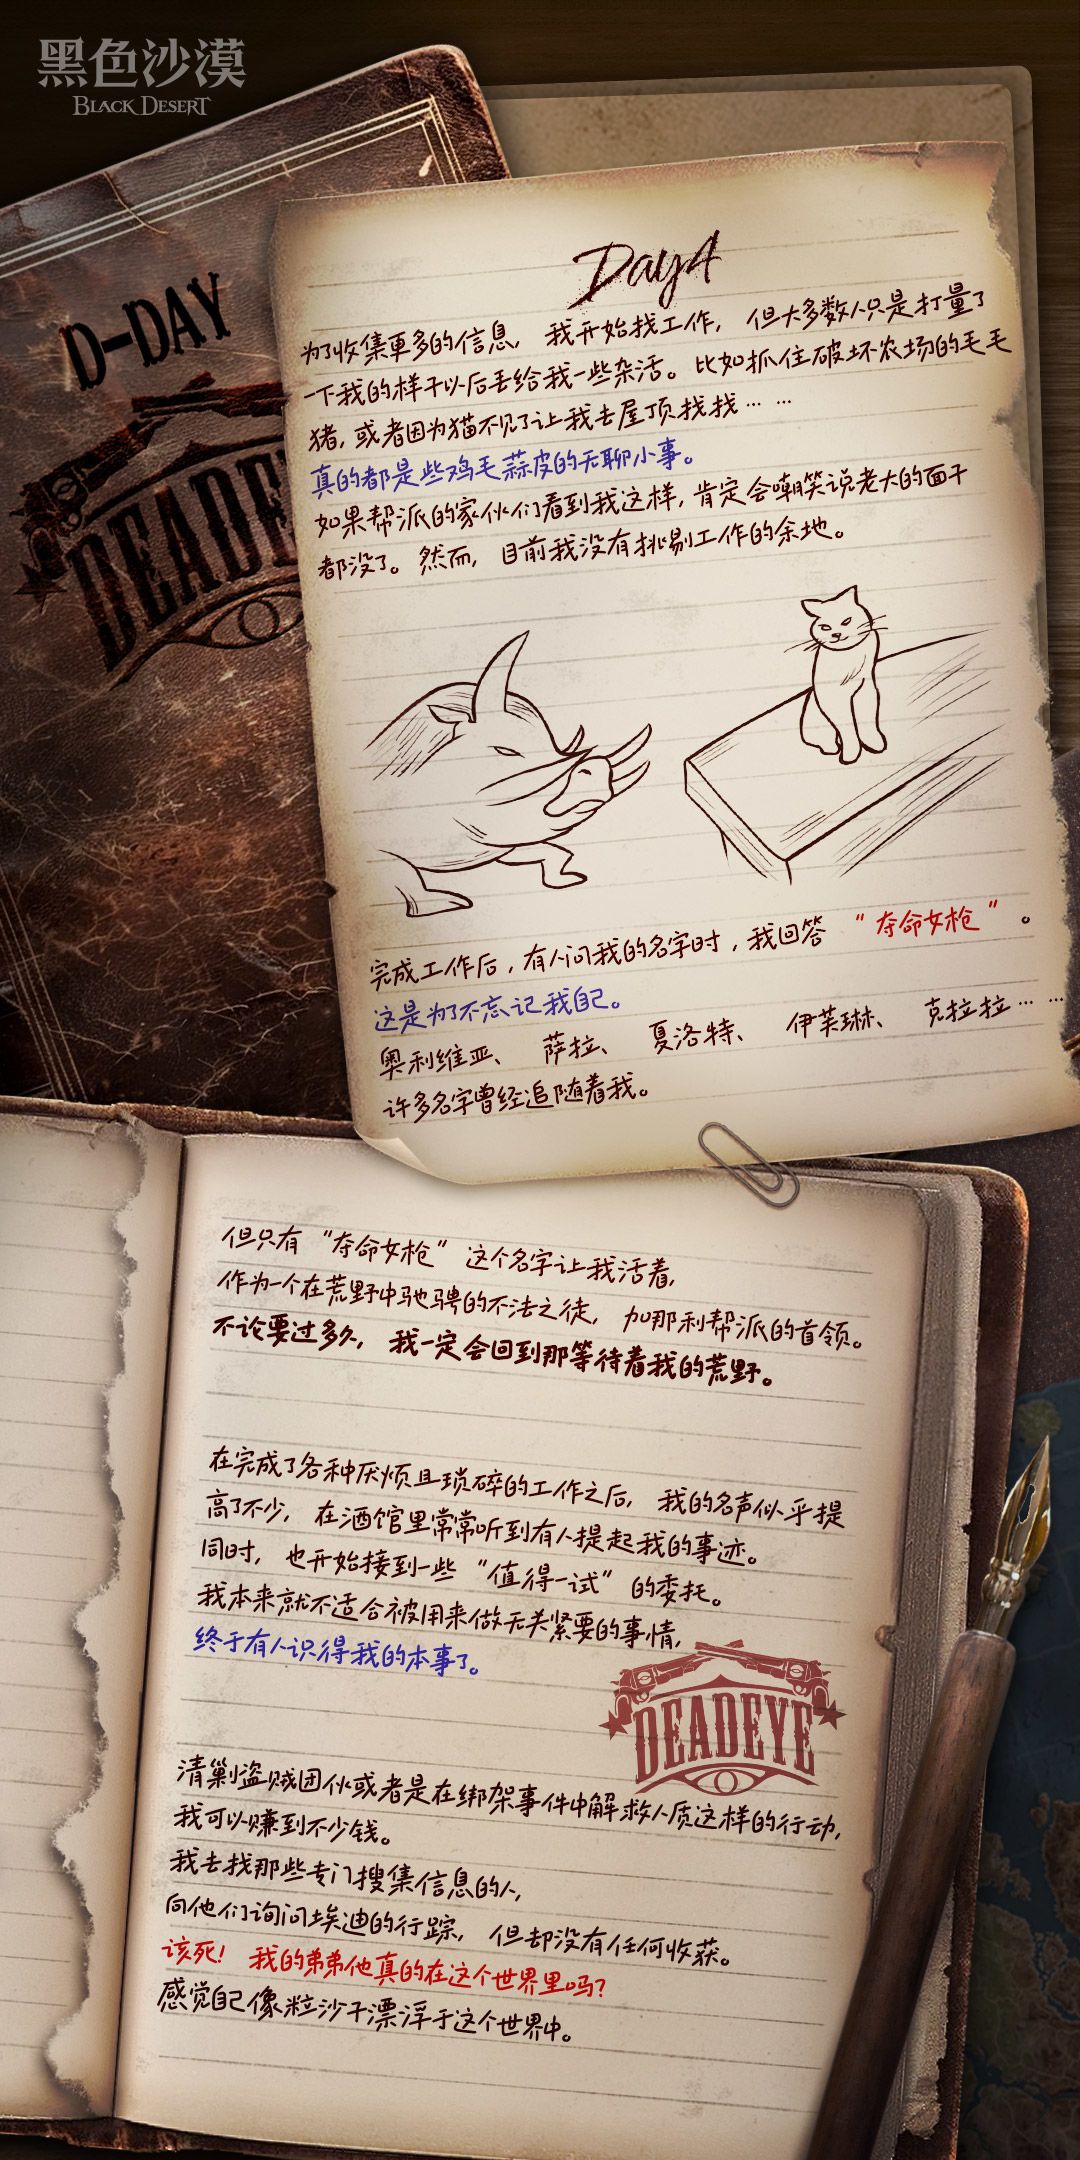 黑色沙漠
BLACK DESERT
D-DAY
Day4
为了收集更多的信息, 我开始找工作, 但大多数人只是打量了
一下我的样子以后丢给我一些杂活。比如抓住破坏农场的毛毛
猪, 或者因为猫不见了让我去屋顶找找… …
真的都是些鸡毛蒜皮的无聊小事。
如果帮派的家伙们看到我这样, 肯定会嘲笑说老大的面子
都没了。然而, 目前我没有挑剔工作的余地。
完成工作后, 有人问我的名字时, 我回答 “夺命女枪” 。
这是为了不忘记我自己。
奥利维亚、 萨拉、 夏洛特、 伊芙琳、 克拉拉… …
许多名字曾经追随着我。
但只有“夺命女枪”这个名字让我活着,
作为一个在荒野中驰骋的不法之徒, 加那利帮派的首领。
不论要过多久, 我一定会回到那等待着我的荒野。
在完成了各种厌烦且琐碎的工作之后, 我的名声似乎提
高了不少, 在酒馆里常常听到有人提起我的事迹。
同时, 也开始接到一些“值得一试”的委托。
我本来就不适合被用来做无关紧要的事情,
终于有人识得我的本事了。
DEADEYE
清剿盗贼团伙或者是在绑架事件中解救人质这样的行动,
我可以赚到不少钱。
我去找那些专门搜集信息的人,
向他们询问埃迪的行踪, 但却没有任何收获。
该死! 我的弟弟他真的在这个世界里吗?
感觉自己像粒沙子漂浮于这个世界中。